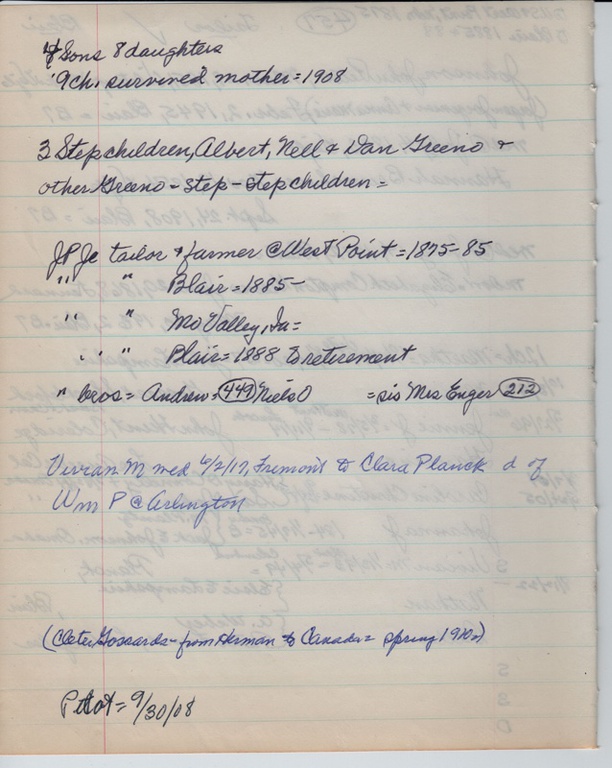 4 Sons 8 daughters
9 ch. survived mother = 1908
3 Stepchildren, Albert, Nell & Dan Greeno &
other Greeno = step-stepchildren =
JPJe tailor & farmer @ West Point = 1875-85
" " Blair = 1885-
" " Mo Valley, Ia =
" " Blair = 1888 to retirement
" bros = Andrew = 449 Niels O = sis Mrs Enger 212
Virran M med 6/2/17, Fremont to Clara Planck d of
Wm P @ Arlington
(Clate Gossards - from Herman to Canada = spring
= 9/30/08